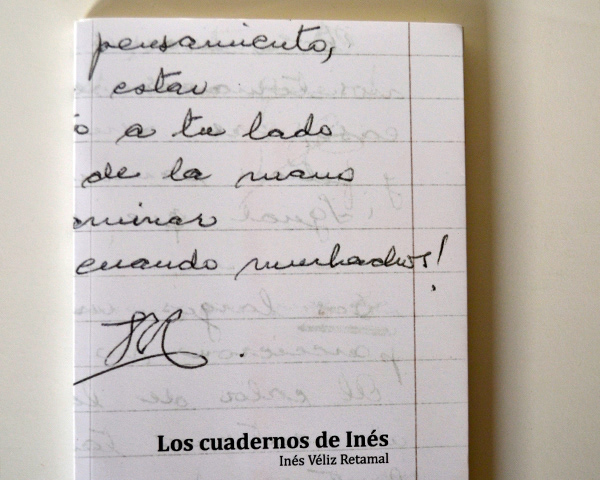 pensamiento,
estar
o a tu lado
de la mano
aminar
cuando muchachos!
Los cuadernos de Inés
Inés Véliz Retamal